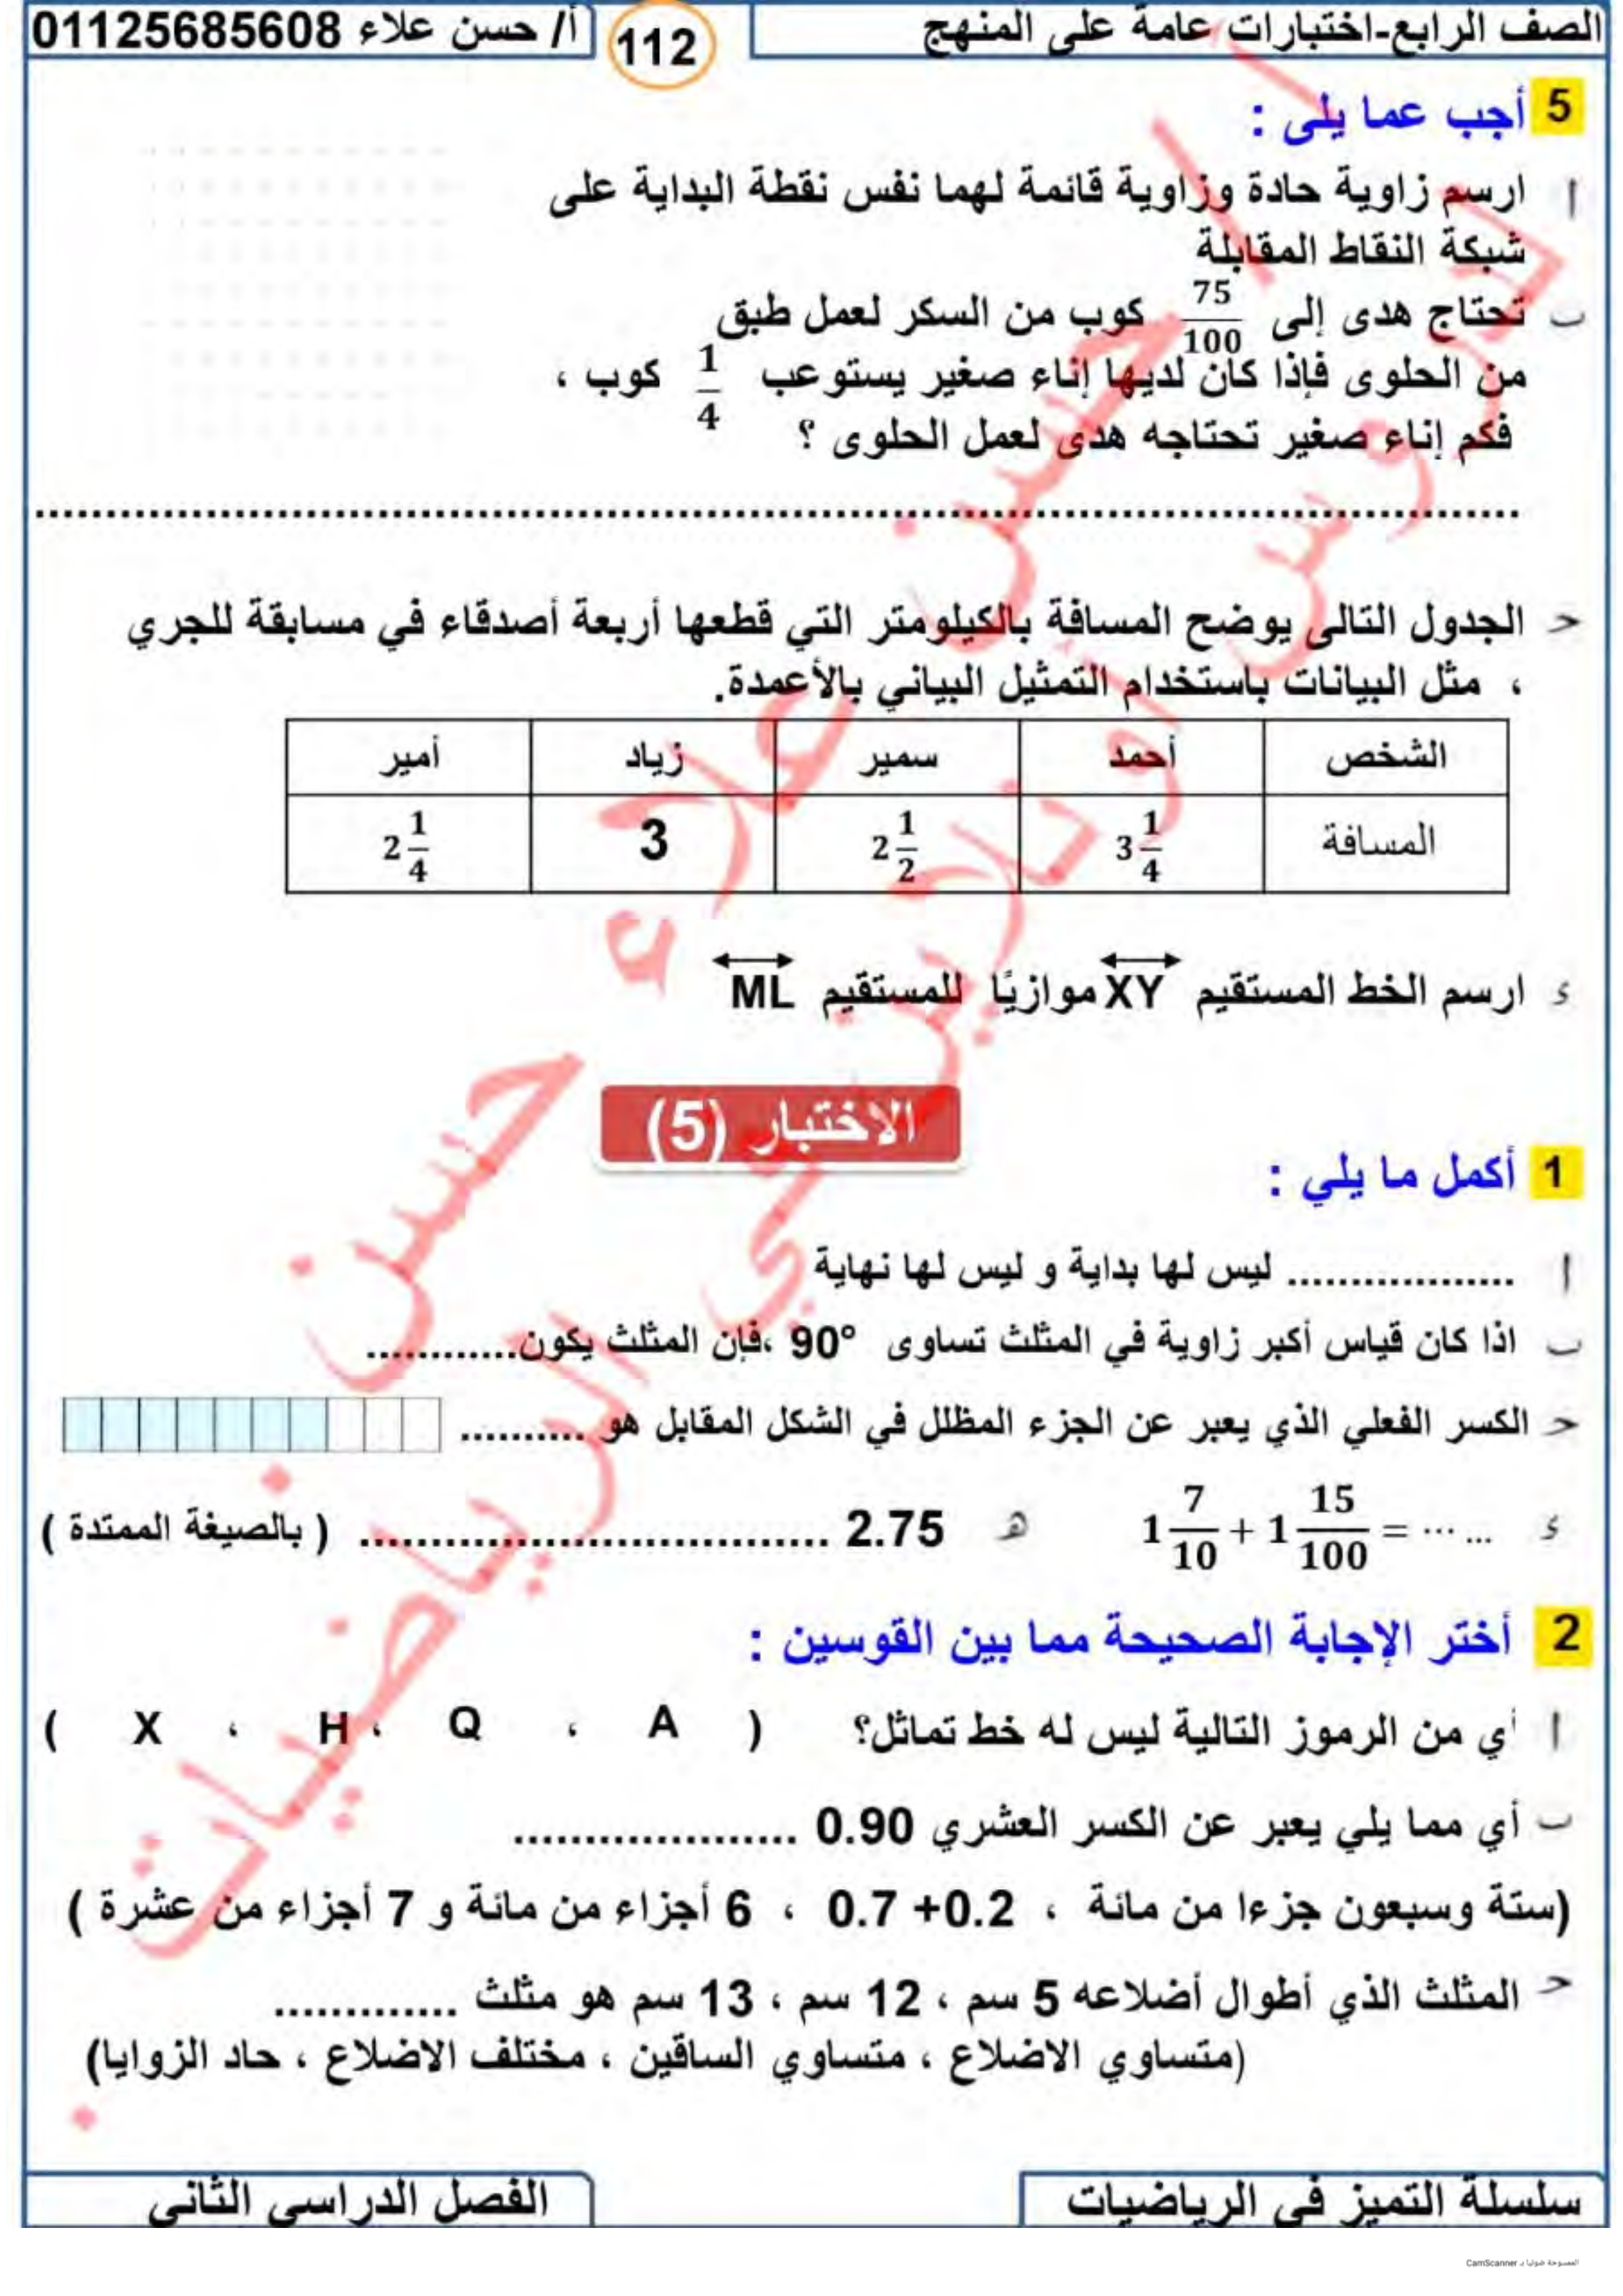 الصف الرابع-اختبارات عامة على المنهج
112
أ/ حسن علاء 01125685608
5 أجب عما يلى :
أ ارسم زاوية حادة وزاوية قائمة لهما نفس نقطة البداية على
شبكة النقاط المقابلة
ب تحتاج هدى إلى 75/100 كوب من السكر لعمل طبق
من الحلوى فإذا كان لديها إناء صغير يستوعب 1/4 كوب ،
فكم إناء صغير تحتاجه هدى لعمل الحلوى ؟
حـ الجدول التالى يوضح المسافة بالكيلومتر التي قطعها أربعة أصدقاء في مسابقة للجري
، مثل البيانات باستخدام التمثيل البياني بالأعمدة.
الشخص أحمد سمير زياد أمير
المسافة 3 1/4 2 1/2 3 2 1/4
ء ارسم الخط المستقيم XY موازيًا للمستقيم ML
الاختبار (5)
1 أكمل ما يلي :
أ .................. ليس لها بداية و ليس لها نهاية
ب اذا كان قياس أكبر زاوية في المثلث تساوى 90° ،فإن المثلث يكون............
حـ الكسر الفعلي الذي يعبر عن الجزء المظلل في الشكل المقابل هو ..........
ء 1 7/10 + 1 15/100 = ...... هـ 2.75 ................................. ( بالصيغة الممتدة )
2 أختر الإجابة الصحيحة مما بين القوسين :
أ أي من الرموز التالية ليس له خط تماثل؟ ( A ، Q ، H ، X )
ب أي مما يلي يعبر عن الكسر العشري 0.90 ....................
(ستة وسبعون جزءا من مائة ، 0.7 +0.2 ، 6 أجزاء من مائة و 7 أجزاء من عشرة )
حـ المثلث الذي أطوال أضلاعه 5 سم ، 12 سم ، 13 سم هو مثلث .............
(متساوي الاضلاع ، متساوي الساقين ، مختلف الاضلاع ، حاد الزوايا)
سلسلة التميز في الرياضيات
الفصل الدراسي الثاني
الممسوحة ضوئيا بـ CamScanner
أ / حسن علاء حسن
دروس أونلاين في الرياضيات